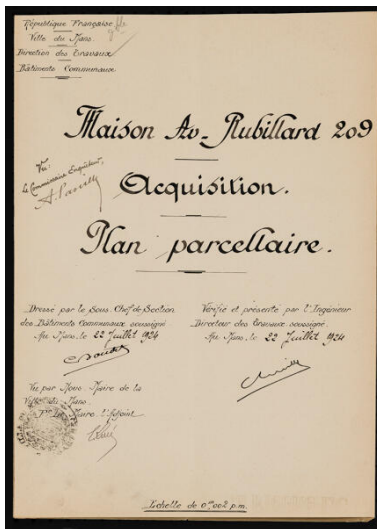 République Française
Ville du Mans
Direction des Travaux
Bâtiments Communaux
Maison Av. Rubillard 209
Vu:
le Commissaire Enquêteur,
Acquisition.
Plan parcellaire.
Dressé par le Sous-Chef de Section
des Bâtiments Communaux soussigné
Au Mans, le 22 Juillet 1924
Vérifié et présenté par l'Ingénieur
Directeur des Travaux soussigné
Au Mans, le 22 Juillet 1924
Vu par Nous, Maire de la
Ville du Mans.
Maire, l'Adjoint
Echelle de 0m002 p.m.